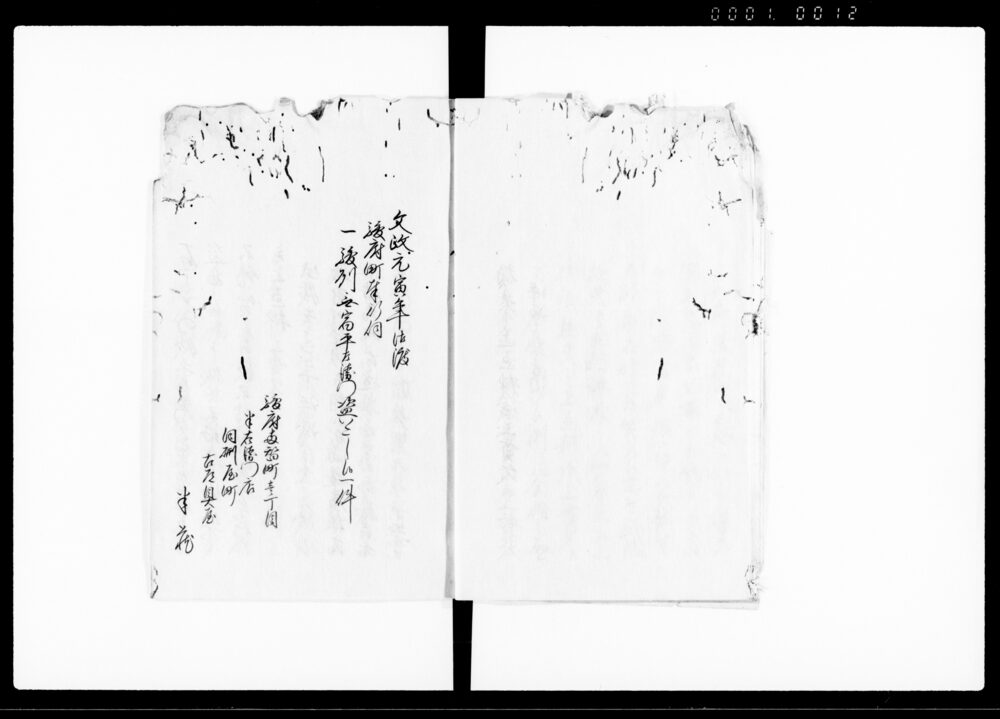 0001. 0012
文政元寅年御渡
駿府町奉行伺
一駿州無宿平左衛門盗いたし候一件
駿府両替町壱丁目
半右衛門店
同研屋町
古道具屋
半蔵